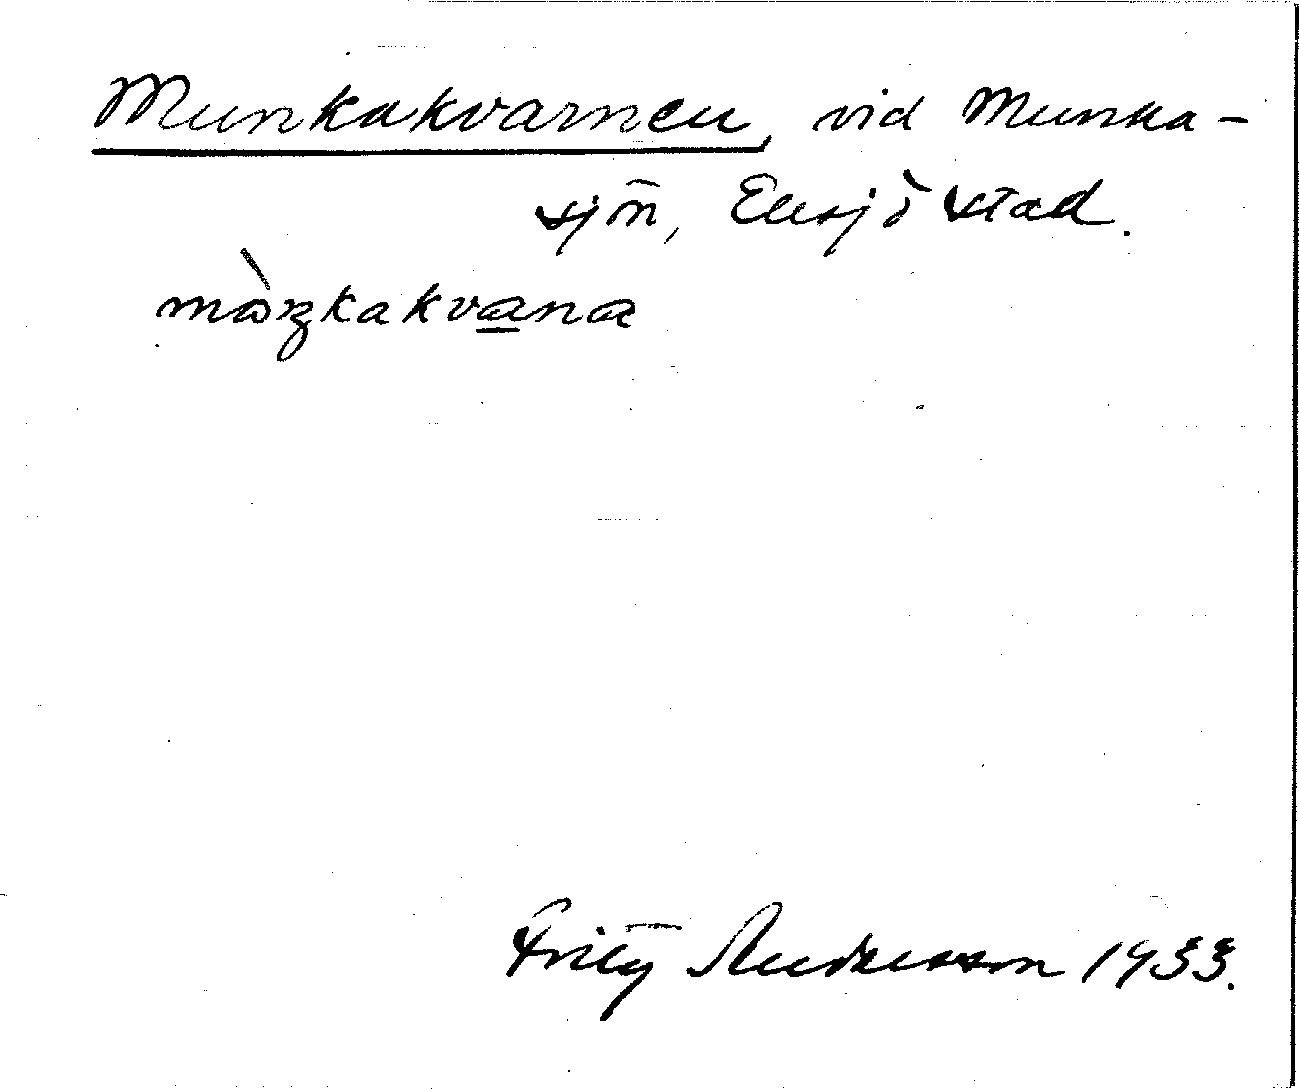 Munkakvarnen, vid Munka-
sjön, Eksjö stad.
màŋkakvana
Fritz Andersson 1933.